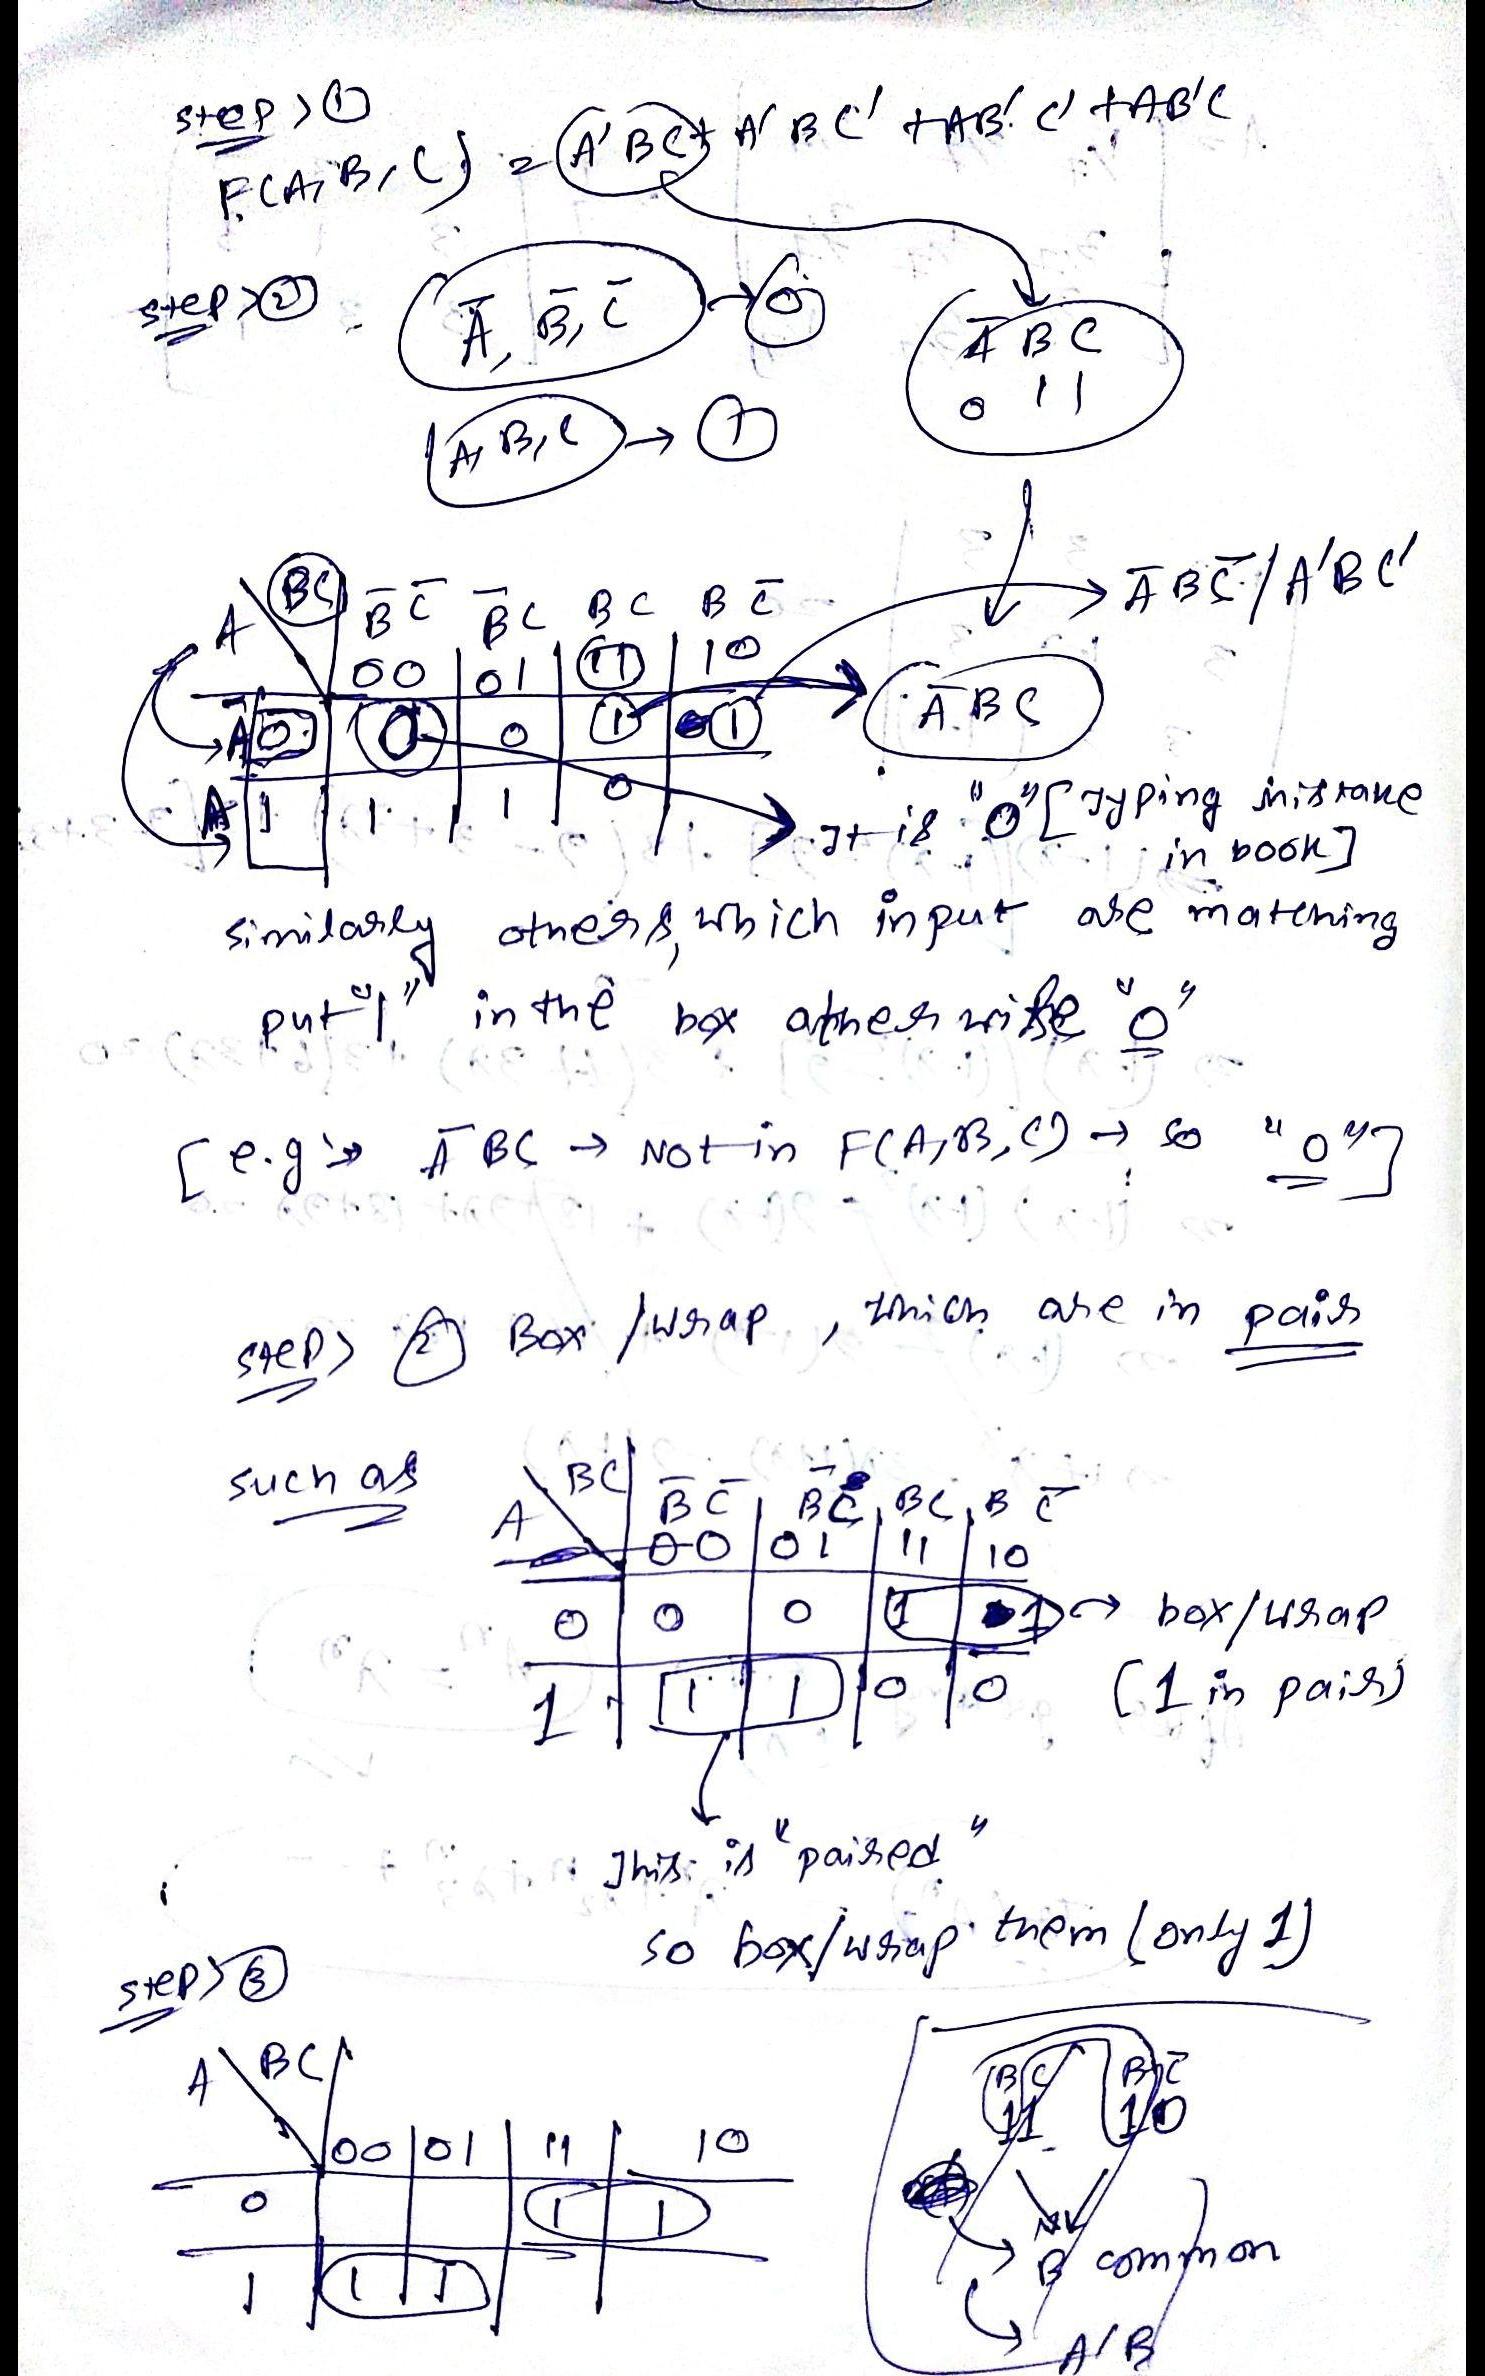 step > ①
F(A, B, C) = A'BC + A'BC' + AB'C' + AB'C
step > ②
A̅, B̅, C̅ → 0
A̅ B C
0 1 1
A, B, C → 1
A̅BC̅ / A'BC'
A BC B̅C̅ B̅C BC BC̅
00 01 11 10
A̅ 0 0 0 1 1
A̅BC
A 1 1 1 0
It is "0" [Typing mistake
in book]
similarly others, which input are matching
put "1" in the box otherwise "0"
[e.g :→ A̅BC → Not in F(A,B,C) → so "0"]
step > ② Box / wrap, which are in pair
such as
A BC B̅C̅ B̅C BC BC̅
00 01 11 10
0 0 0 1 1 → box/wrap
1 1 1 0 0 (1 in pair)
This is "paired"
so box/wrap them (only 1)
step > ③
A BC
00 01 11 10
0 1 1
1 1 1
BC BC̅
11 10
B common
A'B